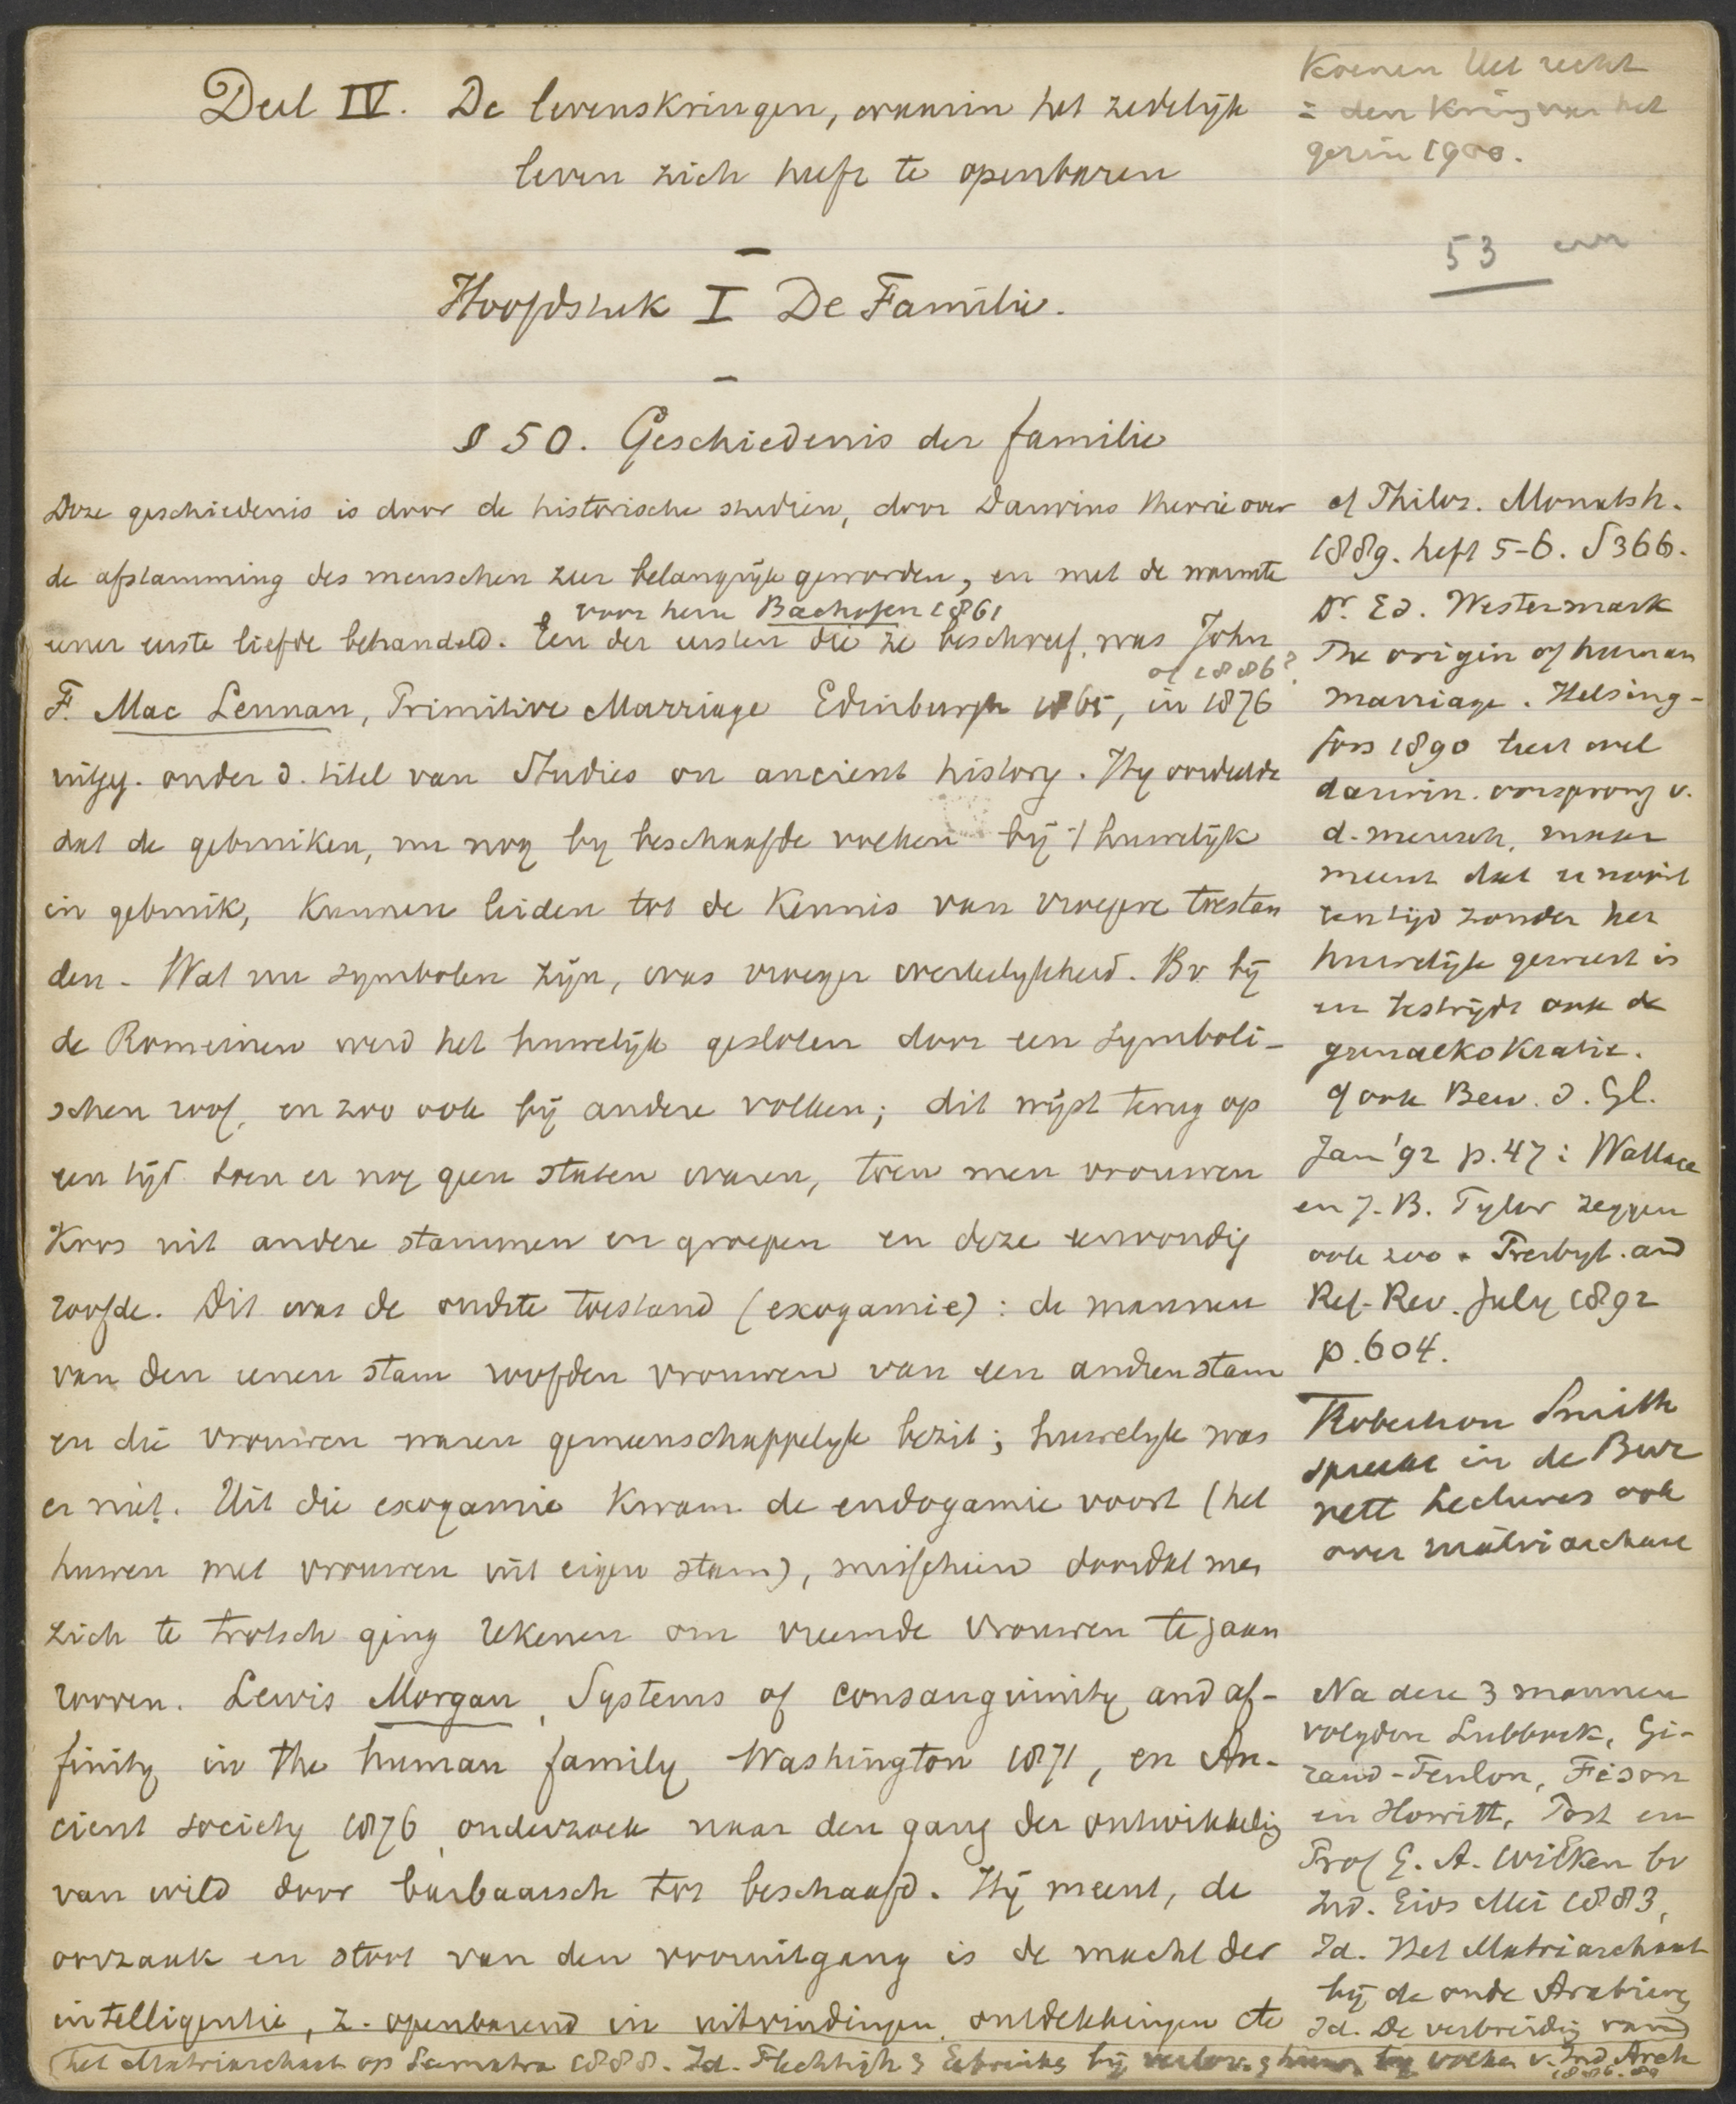 Deel IV. De levenskringen, waarin het zedelijk
leven zich heeft te openbaren
Hoofdstuk I De Familie.
§ 50. Geschiedenis der familie
Deze geschiedenis is door de historische studien, door Darwins theorie over
de afstamming des menschen zeer belangrijk geworden, en met de warmte
voor hem Bachofen 1861
eener eerste liefde behandeld. Een der eersten die ze beschreef, was John
of 1886?
F. Mac Lennan, Primitive Marriage Edinburgh 1865, in 1876
uitgeg. onder d. titel van Studies on ancient history. Hy oordeelde
dat de gebruiken, nu nog by beschaafde volken bij 't huwelijk
in gebruik, kunnen leiden tot de kennis van vroegere toestan
den. Wat nu symbolen zijn, was vroeger werkelykheid. Bv. bij
de Romeinen werd het huwelijk gesloten door een symboli-
schen roof, en zoo ook bij andere volken; dit wijst terug op
een tijd toen er nog geen staten waren, toen men vrouwen
koos uit andere stammen en groepen en deze eenvoudig
roofde. Dit was de oudste toestand (exogamie): de mannen
van den eenen stam roofden vrouwen van een andren stam
en die vrouwen waren gemeenschappelyk bezit; huwelyk was
er niet. Uit die exogamie kwam de endogamie voort (het
huwen met vrouwen uit eigen stam), misschien doordat men
zich te trotsch ging rekenen om vreemde vrouwen te gaan
rooven. Lewis Morgan, Systems of consanguinity and af-
finity in the human family Washington 1871, en An-
cient society 1876, onderzoek naar den gang der ontwikkelig
van wild door barbaarsch tot beschaafd. Hij meent, de
oorzaak en stoot van den vooruitgang is de macht der
intelligentie, z. openbarend in uitvindingen, ontdekkingen etc
Koenen Het recht
in den kring van het
gezin 1900.
53
cf Philos. Monatsh.
1889. heft 5-6. S 366.
Dr. Ed. Westermark
The origin of human
marriage. Helsing-
fors 1890 leert wel
darwin. oorsprong v.
d. mensch, maar
meent dat er nooit
een tijd zonder het
huwelijk geweest is
en bestrijdt ook de
gunaekokratie.
cf ook Bew. d. Gl.
Jan '92 p. 47: Wallace
en J. B. Tylor zeggen
ook zoo. Presbyt. and
Ref. Rev. July 1892
p. 604.
Robertson Smith
spreekt in de Bur
nett Lectures ook
over matriarchaat
Na deze 3 mannen
volgden Lubbock, Gi-
raud-Teulon, Fison
en Howitt, Post en
Prof G. A. Wilken bv
Ind. Gids Mei 1883,
Id. Het Matriarchaat
bij de oude Arabieren
Id. De verbreidig van
het Matriarchaat op Sumatra 1888. Id. Plechtigh & Gebruiken bij verlov. & huw. by volken v. Ind Arch
1886. 89